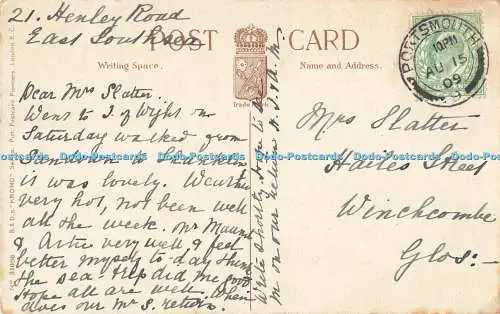 21. Henley Road
East Southsea
POST CARD
Writing Space.
Name and Address.
Trade
PORTSMOUTH
10 PM
AU 15
09
Dear Mrs Slatter.
Went to I. of Wight on
Saturday walked from
Sandown Shanklin
it was lovely. Weather
very hot, not been well
all the week. Mr
& Artie very well, I feel
better myself to day think
the sea trip did me good
Hope all are well. When
does our Mr S. return.
Write shortly, hope to
on our return
Mrs Slatter
Hailes Street
Winchcombe
Glos:
Dodo-Postcards Dodo-Postcards Dodo-Postcards Dodo-Postcards Dodo-Postcards